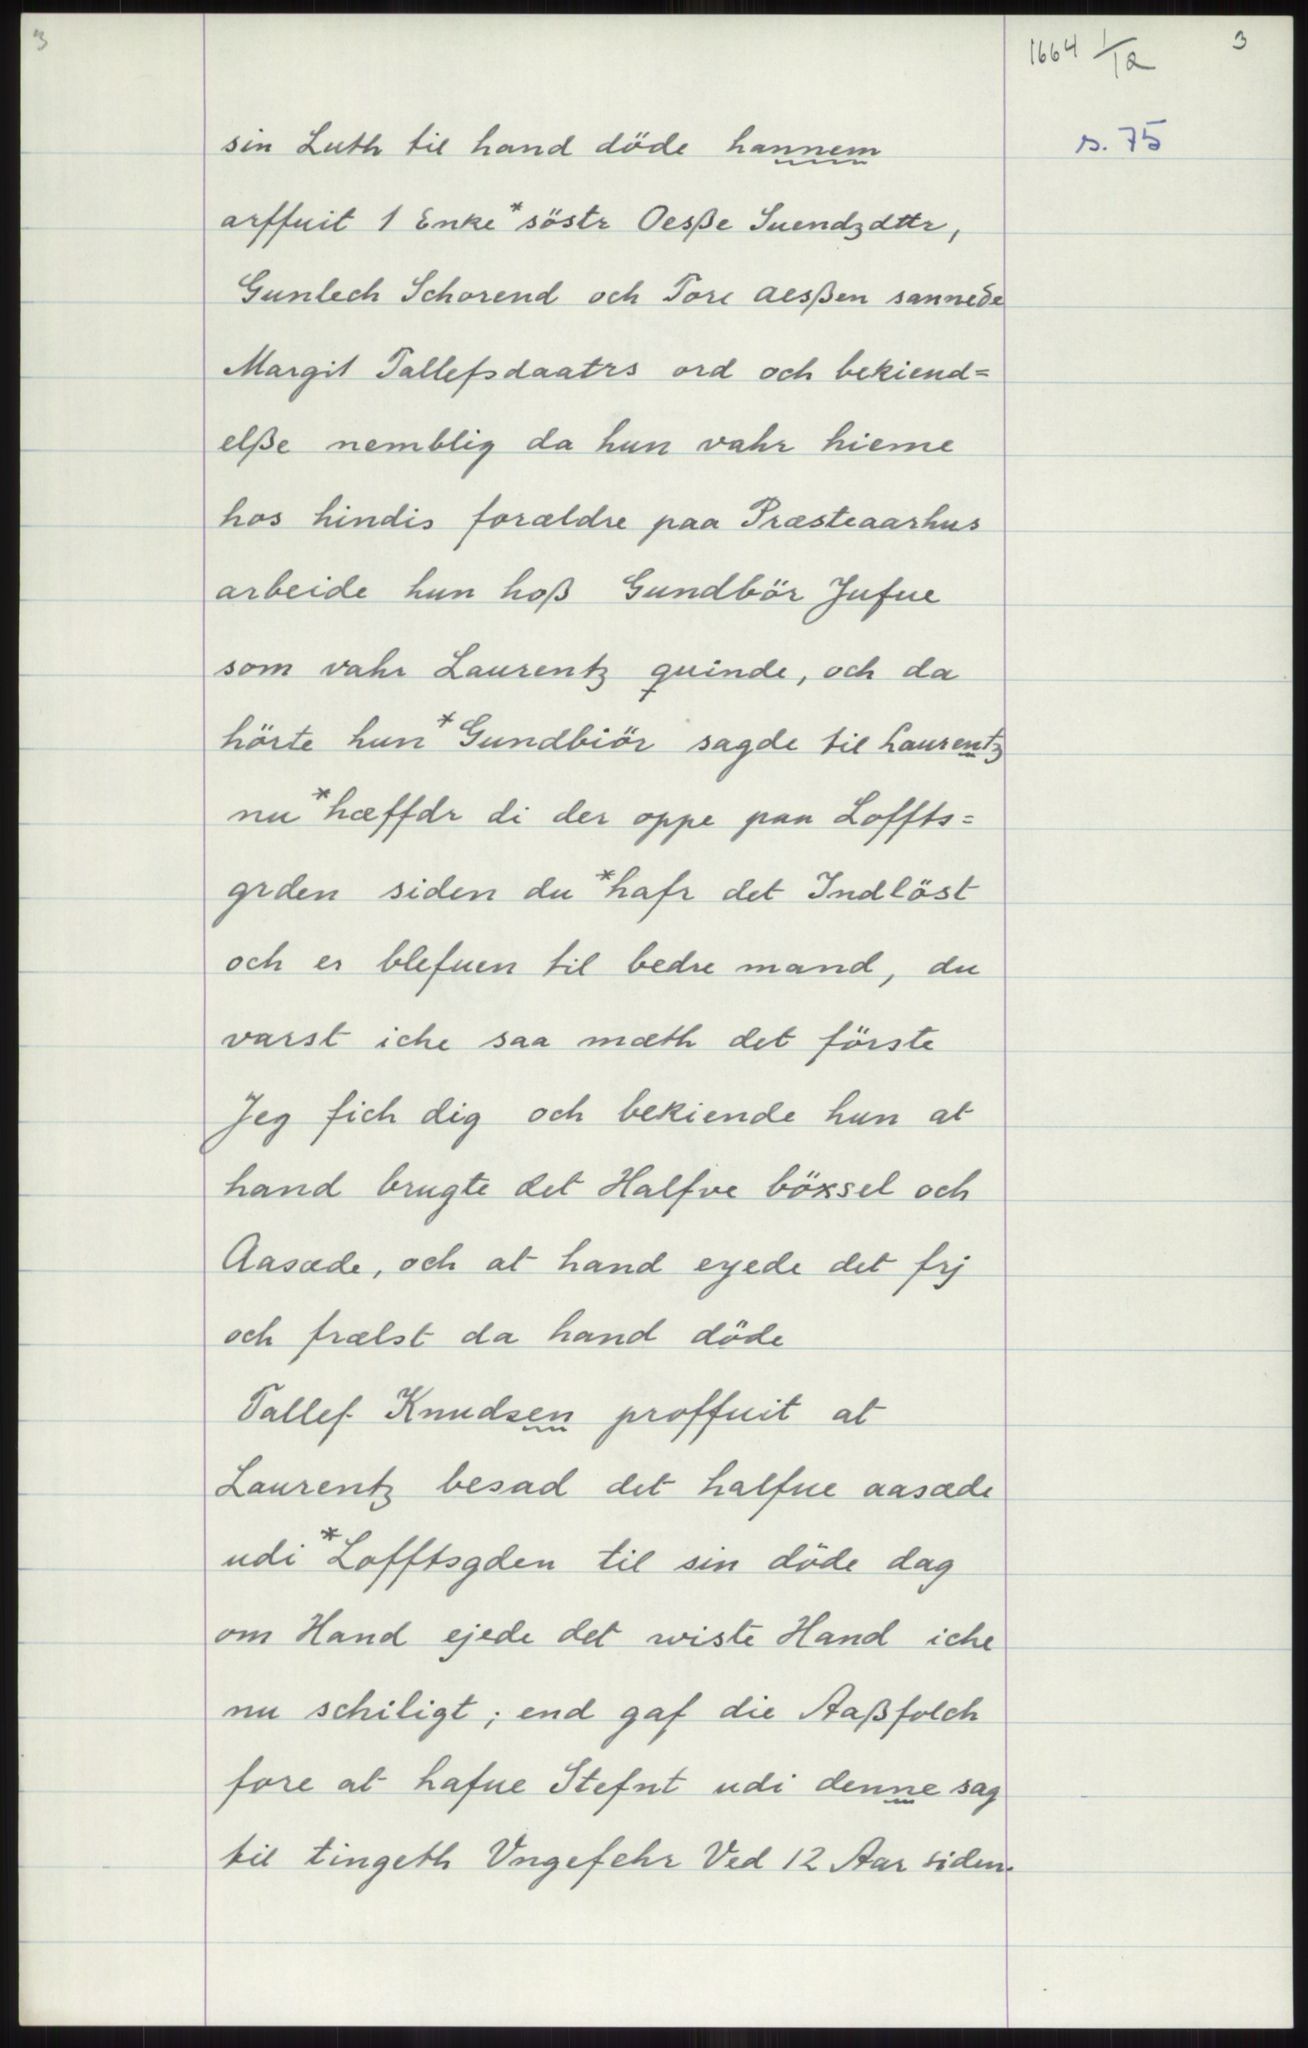 3
1664 1/12
3
s. 75
sin Luth til hand döde hannem
arffuit 1 Enke *söstr Oesße Suendzdttr,
Gunlech Schorend och Tore Aesßen sannede
Margit Tallefsdaatrs ord och bekiend=
elße nemblig da hun vahr hieme
hos hindis forældre paa Præsteaarhus
arbeide hun hoß Gundbör Jufue
som vahr Laurentz quinde, och da
hörte hun *Gundbiör sagde til Laurentz
nu *hæffdr di der oppe paa Loffts=
grden siden du *hafr det Indlöst
och er blefuen til bedre mand, du
varst iche saa mæth det förste
Jeg fich dig och bekiende hun at
hand brugte det Halfve böxsel och
Aasæde, och at hand eyede det frj
och frælst da hand döde
Tallef Knudsen proffuit at
Laurentz besad det halfue aasæde
udi *Lofftsgden til sin döde dag
om Hand ejede det wiste Hand iche
nu schiligt; end gaf die Aaßfolch
fore at hafue Stefnt udi denne sag
til tingeth Vngefehr Ved 12 Aar siden.